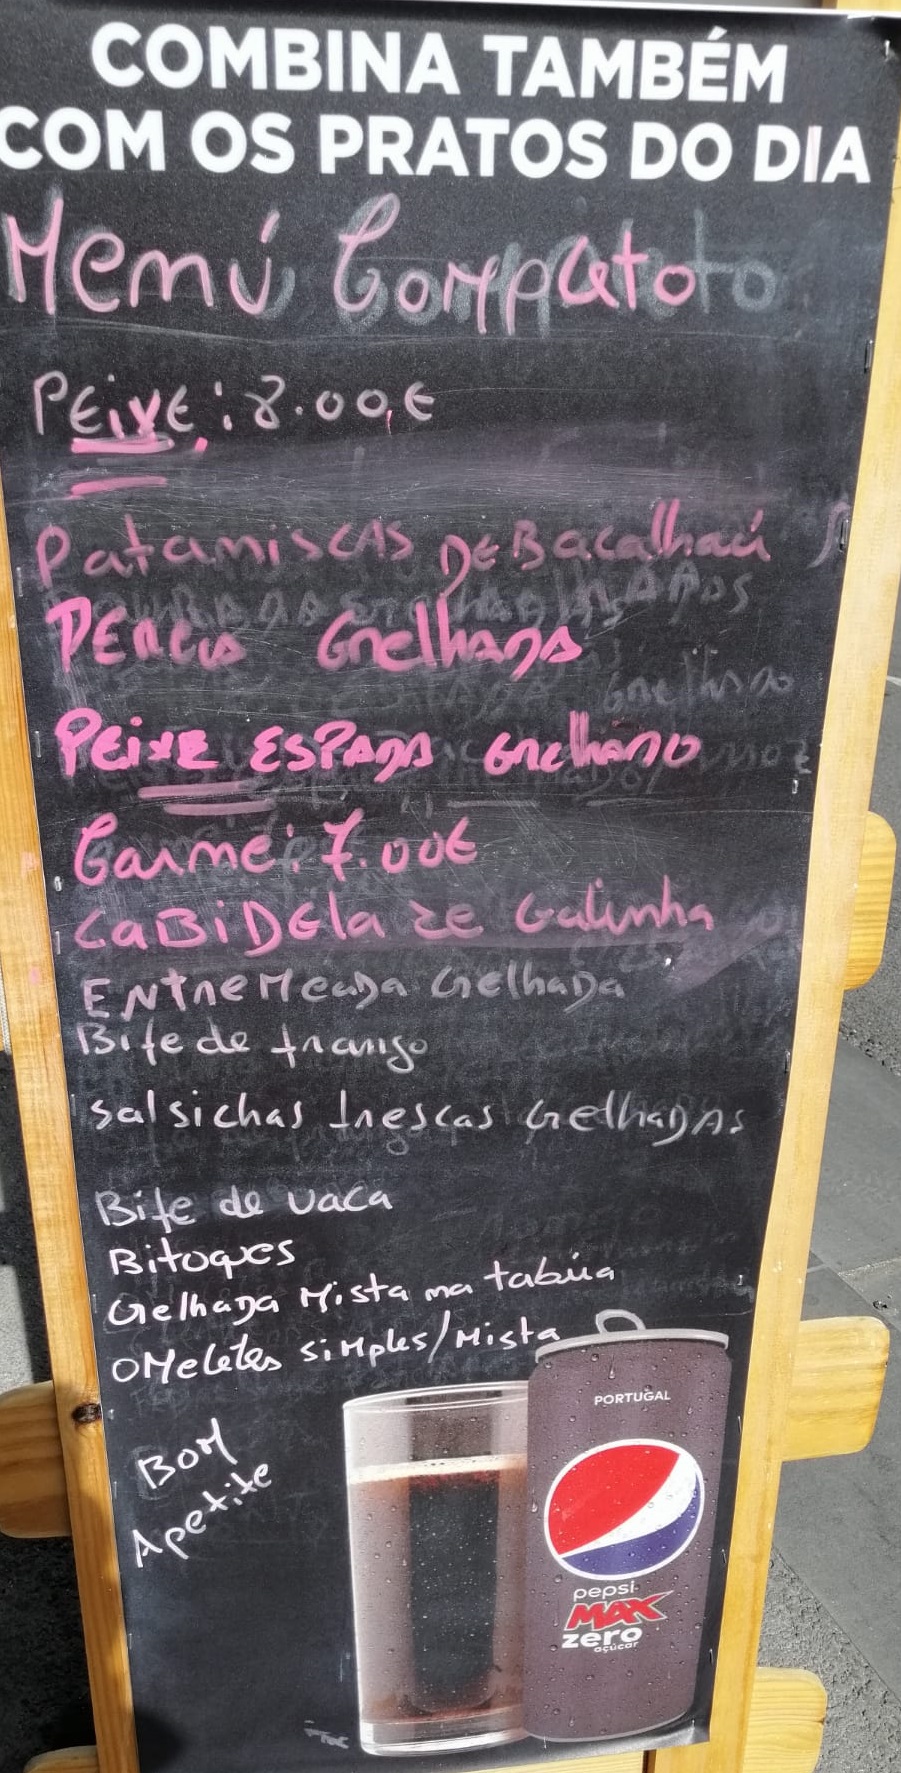 COMBINA TAMBÉM
COM OS PRATOS DO DIA
Menú Completo
PEIXE: 8.00€
Pataniscas DE Bacalhaú
PERCA Grelhada
PEIXE ESPADA Grelhado
Carne: 7.00€
CABIDEla de Galinha
ENtreMeada Grelhada
Bife de frango
Salsichas frescas Grelhadas
Bife de vaca
Bitoques
Gelhada Mista na tabúa
OMeletes simples/Mista
BOM
Apetite
PORTUGAL
pepsi
MAX
zero
açúcar